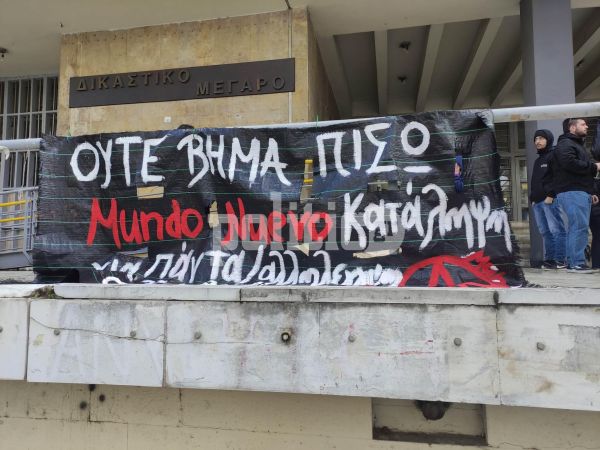 ΔΙΚΑΣΤΙΚΟ
ΜΕΓΑΡΟ
ΟΥΤΕ ΒΗΜΑ ΠΙΣΩ
Mundo Nuevo Κατάληψη
για πάντα/αλληλεγγύη